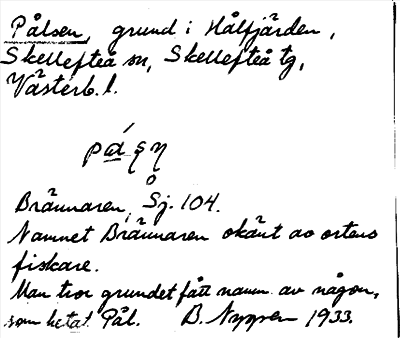 Pålsen, grund i Hålfjärden,
Skellefteå sn, Skellefteå tg,
Västerb. l.
Brännaren, Sj. 104.
Namnet Brännaren okänt av ortens
fiskare.
Man tror grundet fått namn av någon,
som hetat Pål. B. Nyppen 1933.